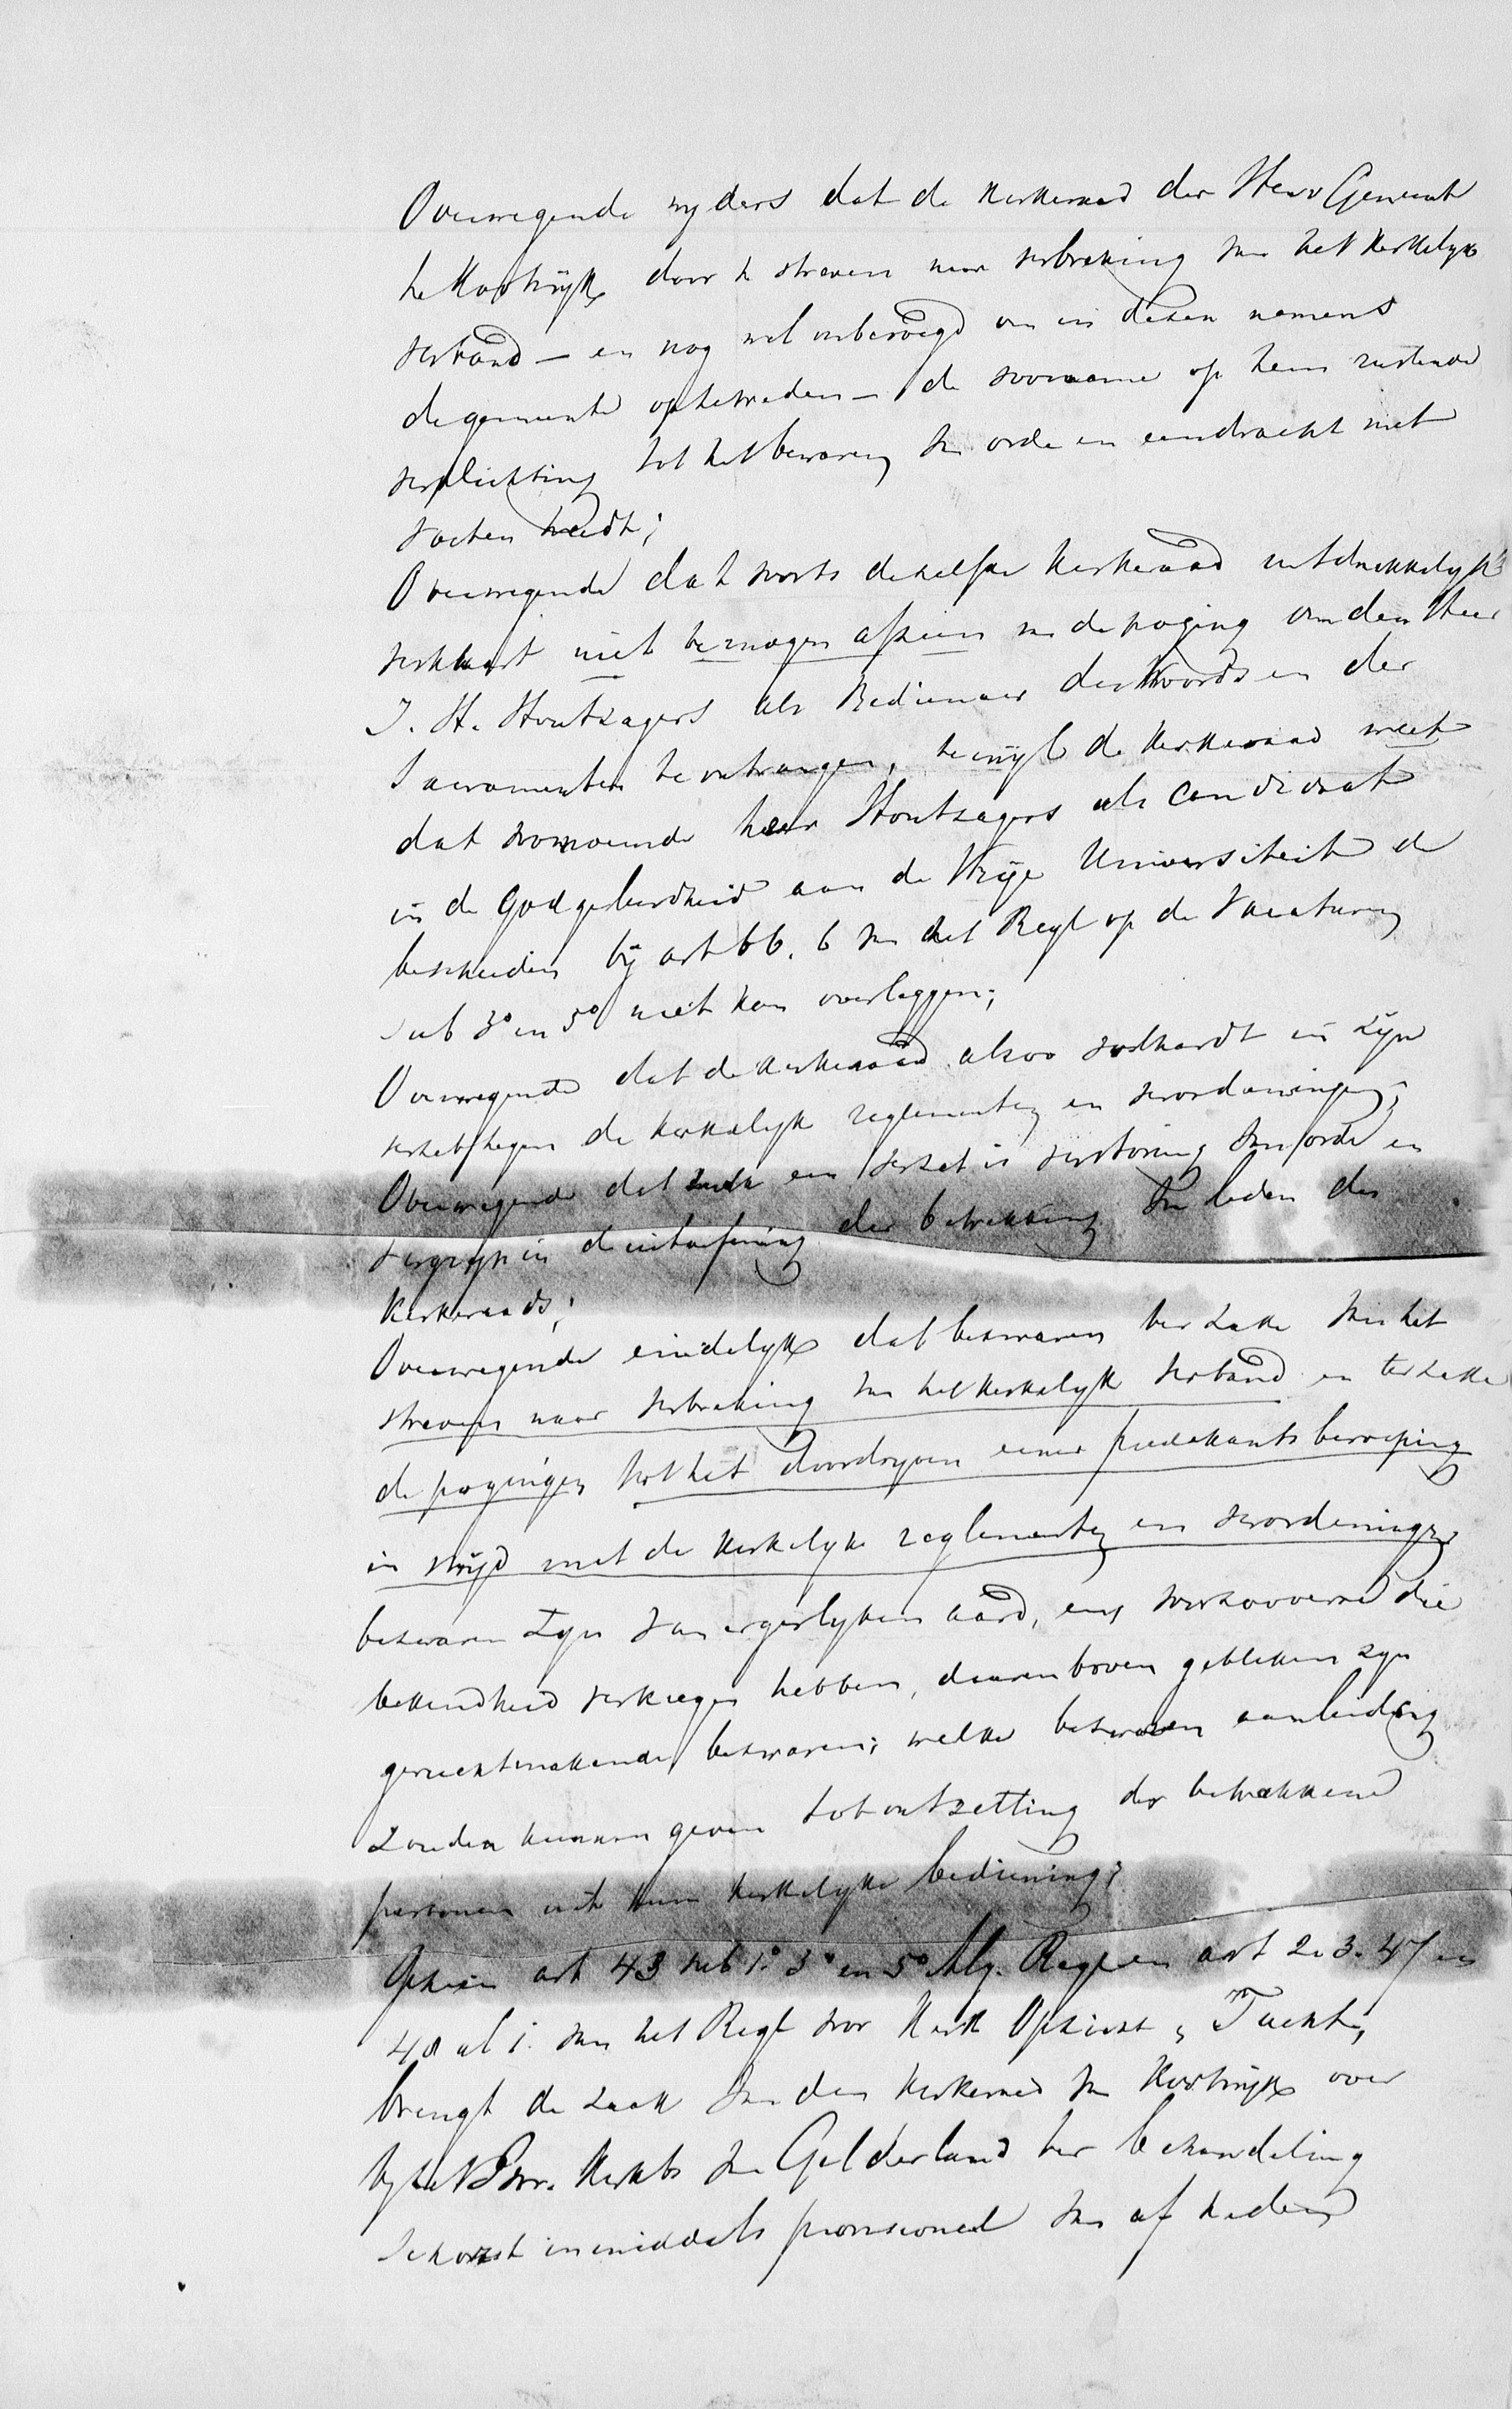 Overwegende wyders dat de Kerkeraad der Herv Gemeente
te Kootwijk door te streven naar verbreking van het Kerkelyk
verband — en nog wel onbevoegd om in dezen namens
de gemeente optetreden — de voorname op hem rustende
verplichting tot het bewaren van orde en eendracht met
voeten treedt;
Overwegende dat voorts dezelfde Kerkeraad uitdrukkelyk
verklaart niet te mogen afzien van de poging om den Heer
J. H. Houtzagers als Bedienaar des Woords en der
Sacramenten te ontvangen, terwijl de Kerkeraad weet
dat voornoemde heer Houtzagers als Candidaat
in de Godgeleerdheid aan de Vrije Universiteit de
bescheiden bij art 66. 6 van het Regl op de Vacaturen
sub 3° en 5° niet kan overleggen;
Overwegende dat de Kerkeraad alzoo volhardt in zijn
verzet tegen de kerkelyke reglementen en verordeningen;
Overwegende dat zulk een verzet is verstoring van orde en
vergryp in de uitoefening der betrekking van leden des
Kerkeraads;
Overwegende eindelyk dat bezwaren ter zake van het
streven naar verbreking van het kerkelyk verband en ter zake
de pogingen tot het doordryven eener predikantsberoeping
in strijd met de kerkelyke reglementen en verordeningen
bezwaren zyn van ergerlyken aard, en, voorzooverre die
bekendheid verkregen hebben, daarenboven gebleken zyn
geruchtmakende bezwaren; welke bezwaren aanleiding
zouden kunnen geven tot ontzetting der betrokkene
personen uit hun kerkelyke bediening;
Gezien art 43 sub 1° 3° en 5° Alg. Regl en art 2. 3. 47 en
48 al 1. van het Regl voor Kerk Opzicht & Tucht,
brengt de zaak van den Kerkeraad van Kootwijk over
by het Prov. Kerkb van Gelderland ter behandeling
schorst inmiddels provisioneel van af heden